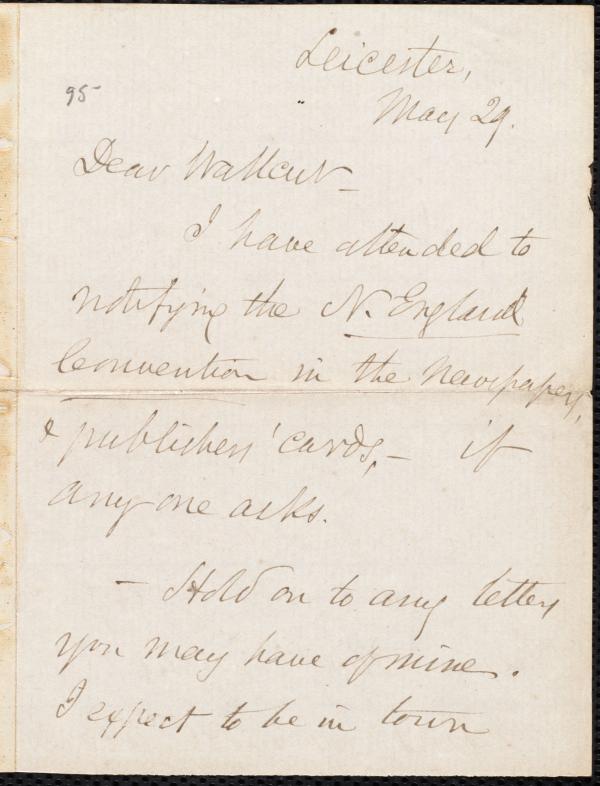 Leicester,
95
May 29.
Dear Wallcut -
I have attended to
notifying the N. England
Convention in the newspapers,
& publishers' cards, - if
any one asks.
- Hold on to any letters
you may have of mine.
I expect to be in town